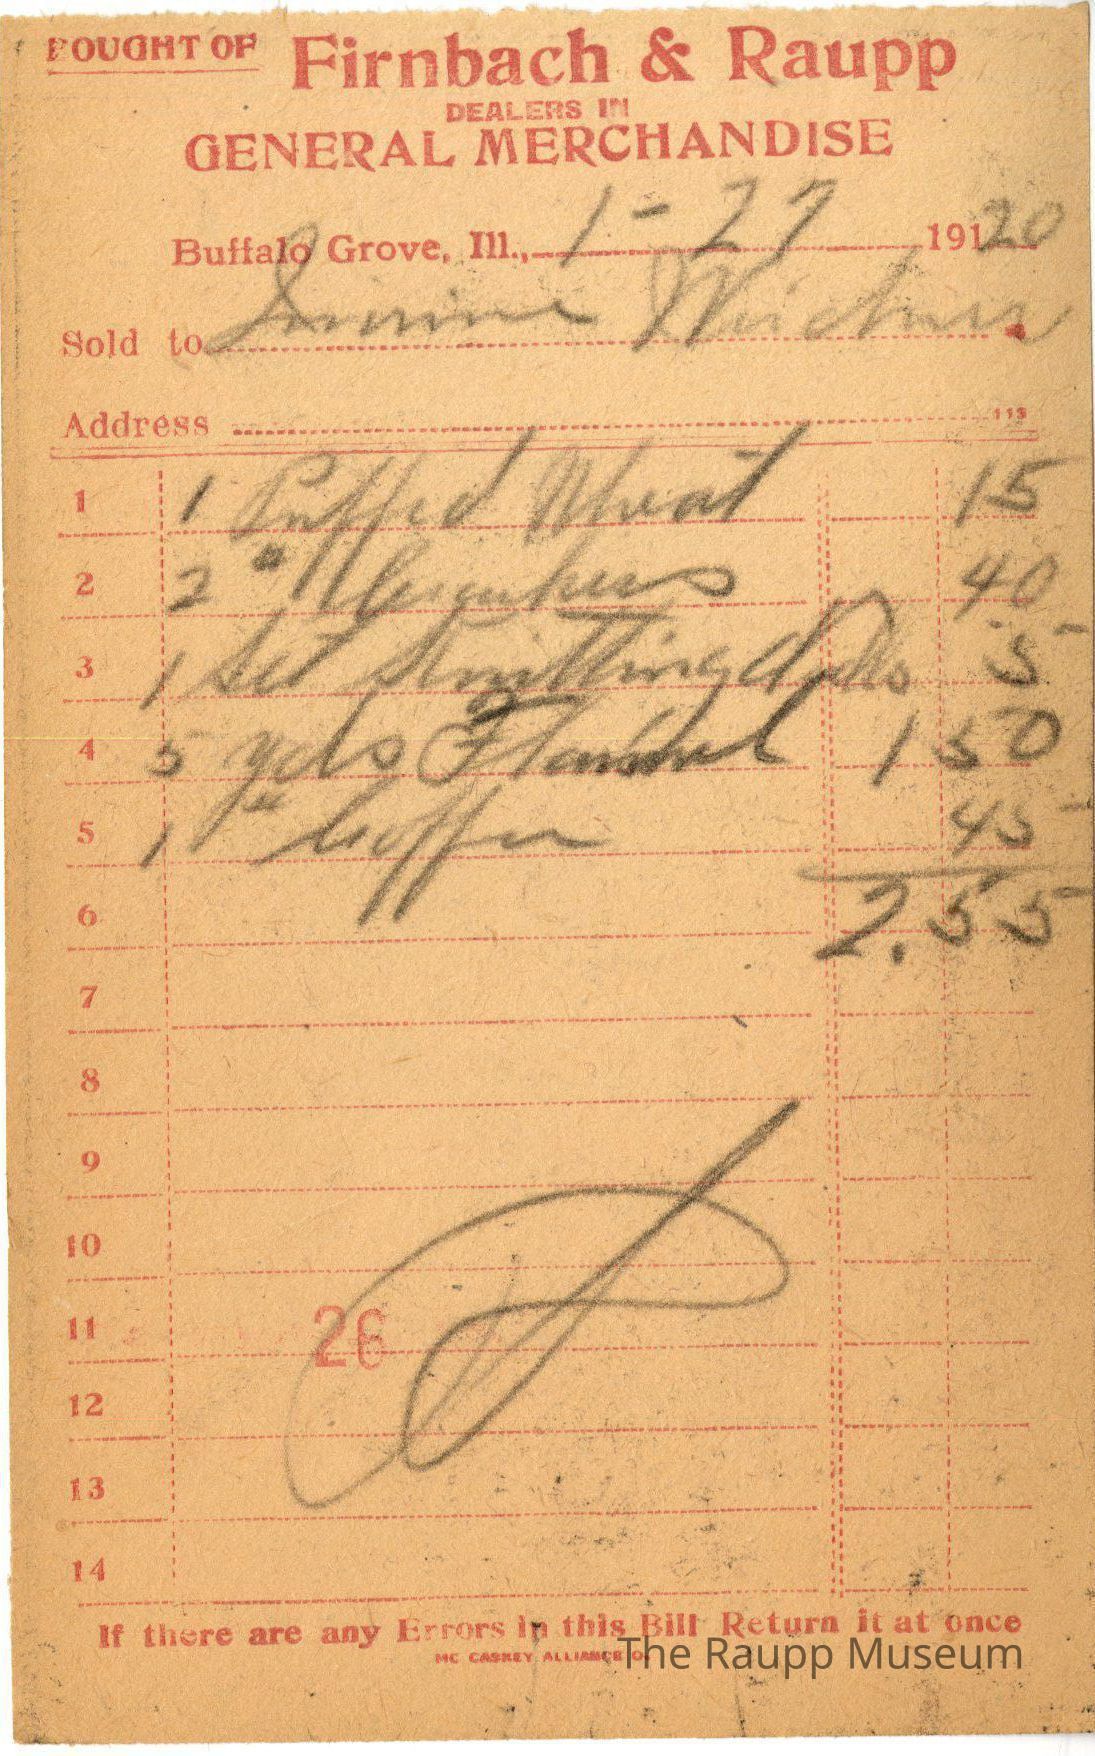 BOUGHT OF Firnbach & Raupp
DEALERS IN
GENERAL MERCHANDISE
Buffalo Grove, Ill., 1-27 19120
Sold to
Address
113
1 1 Puffed Wheat 15
2 2 " 40
3 1 Set Knitting 5
4 5 yds Flannel 1 50
5 1 " Coffee 45
6 2.55
7
8
9
10
11
26
12
13
14
If there are any Errors in this Bill Return it at once
MC CASKEY ALLIANCE O.
The Raupp Museum